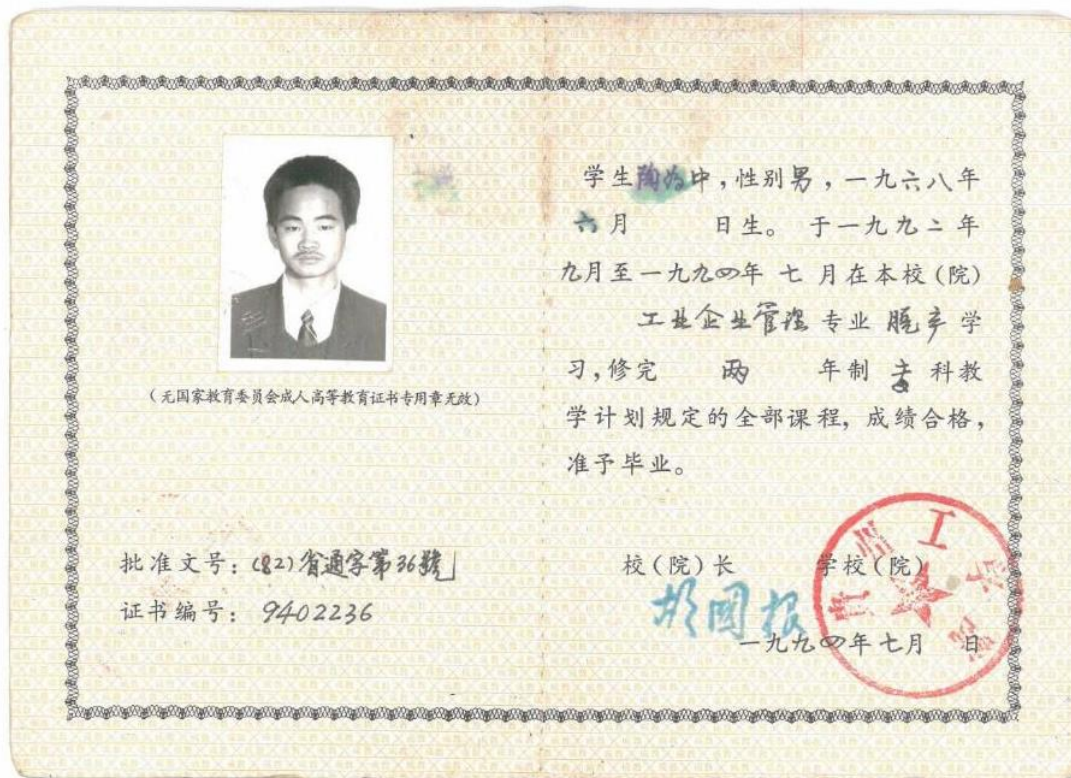 （无国家教育委员会成人高等教育证书专用章无效）
批准文号：(82)省通字第36號
证书编号：9402236
学生陶为中，性别男，一九六八年
六月 日生。于一九九二年
九月至一九九四年 七 月在本校（院）
工业企业管理 专业 脱产 学
习，修完 两 年制 专 科教
学计划规定的全部课程，成绩合格，
准予毕业。
校（院）长 学校（院）
胡國根
一九九四年七月 日
贵州工学院